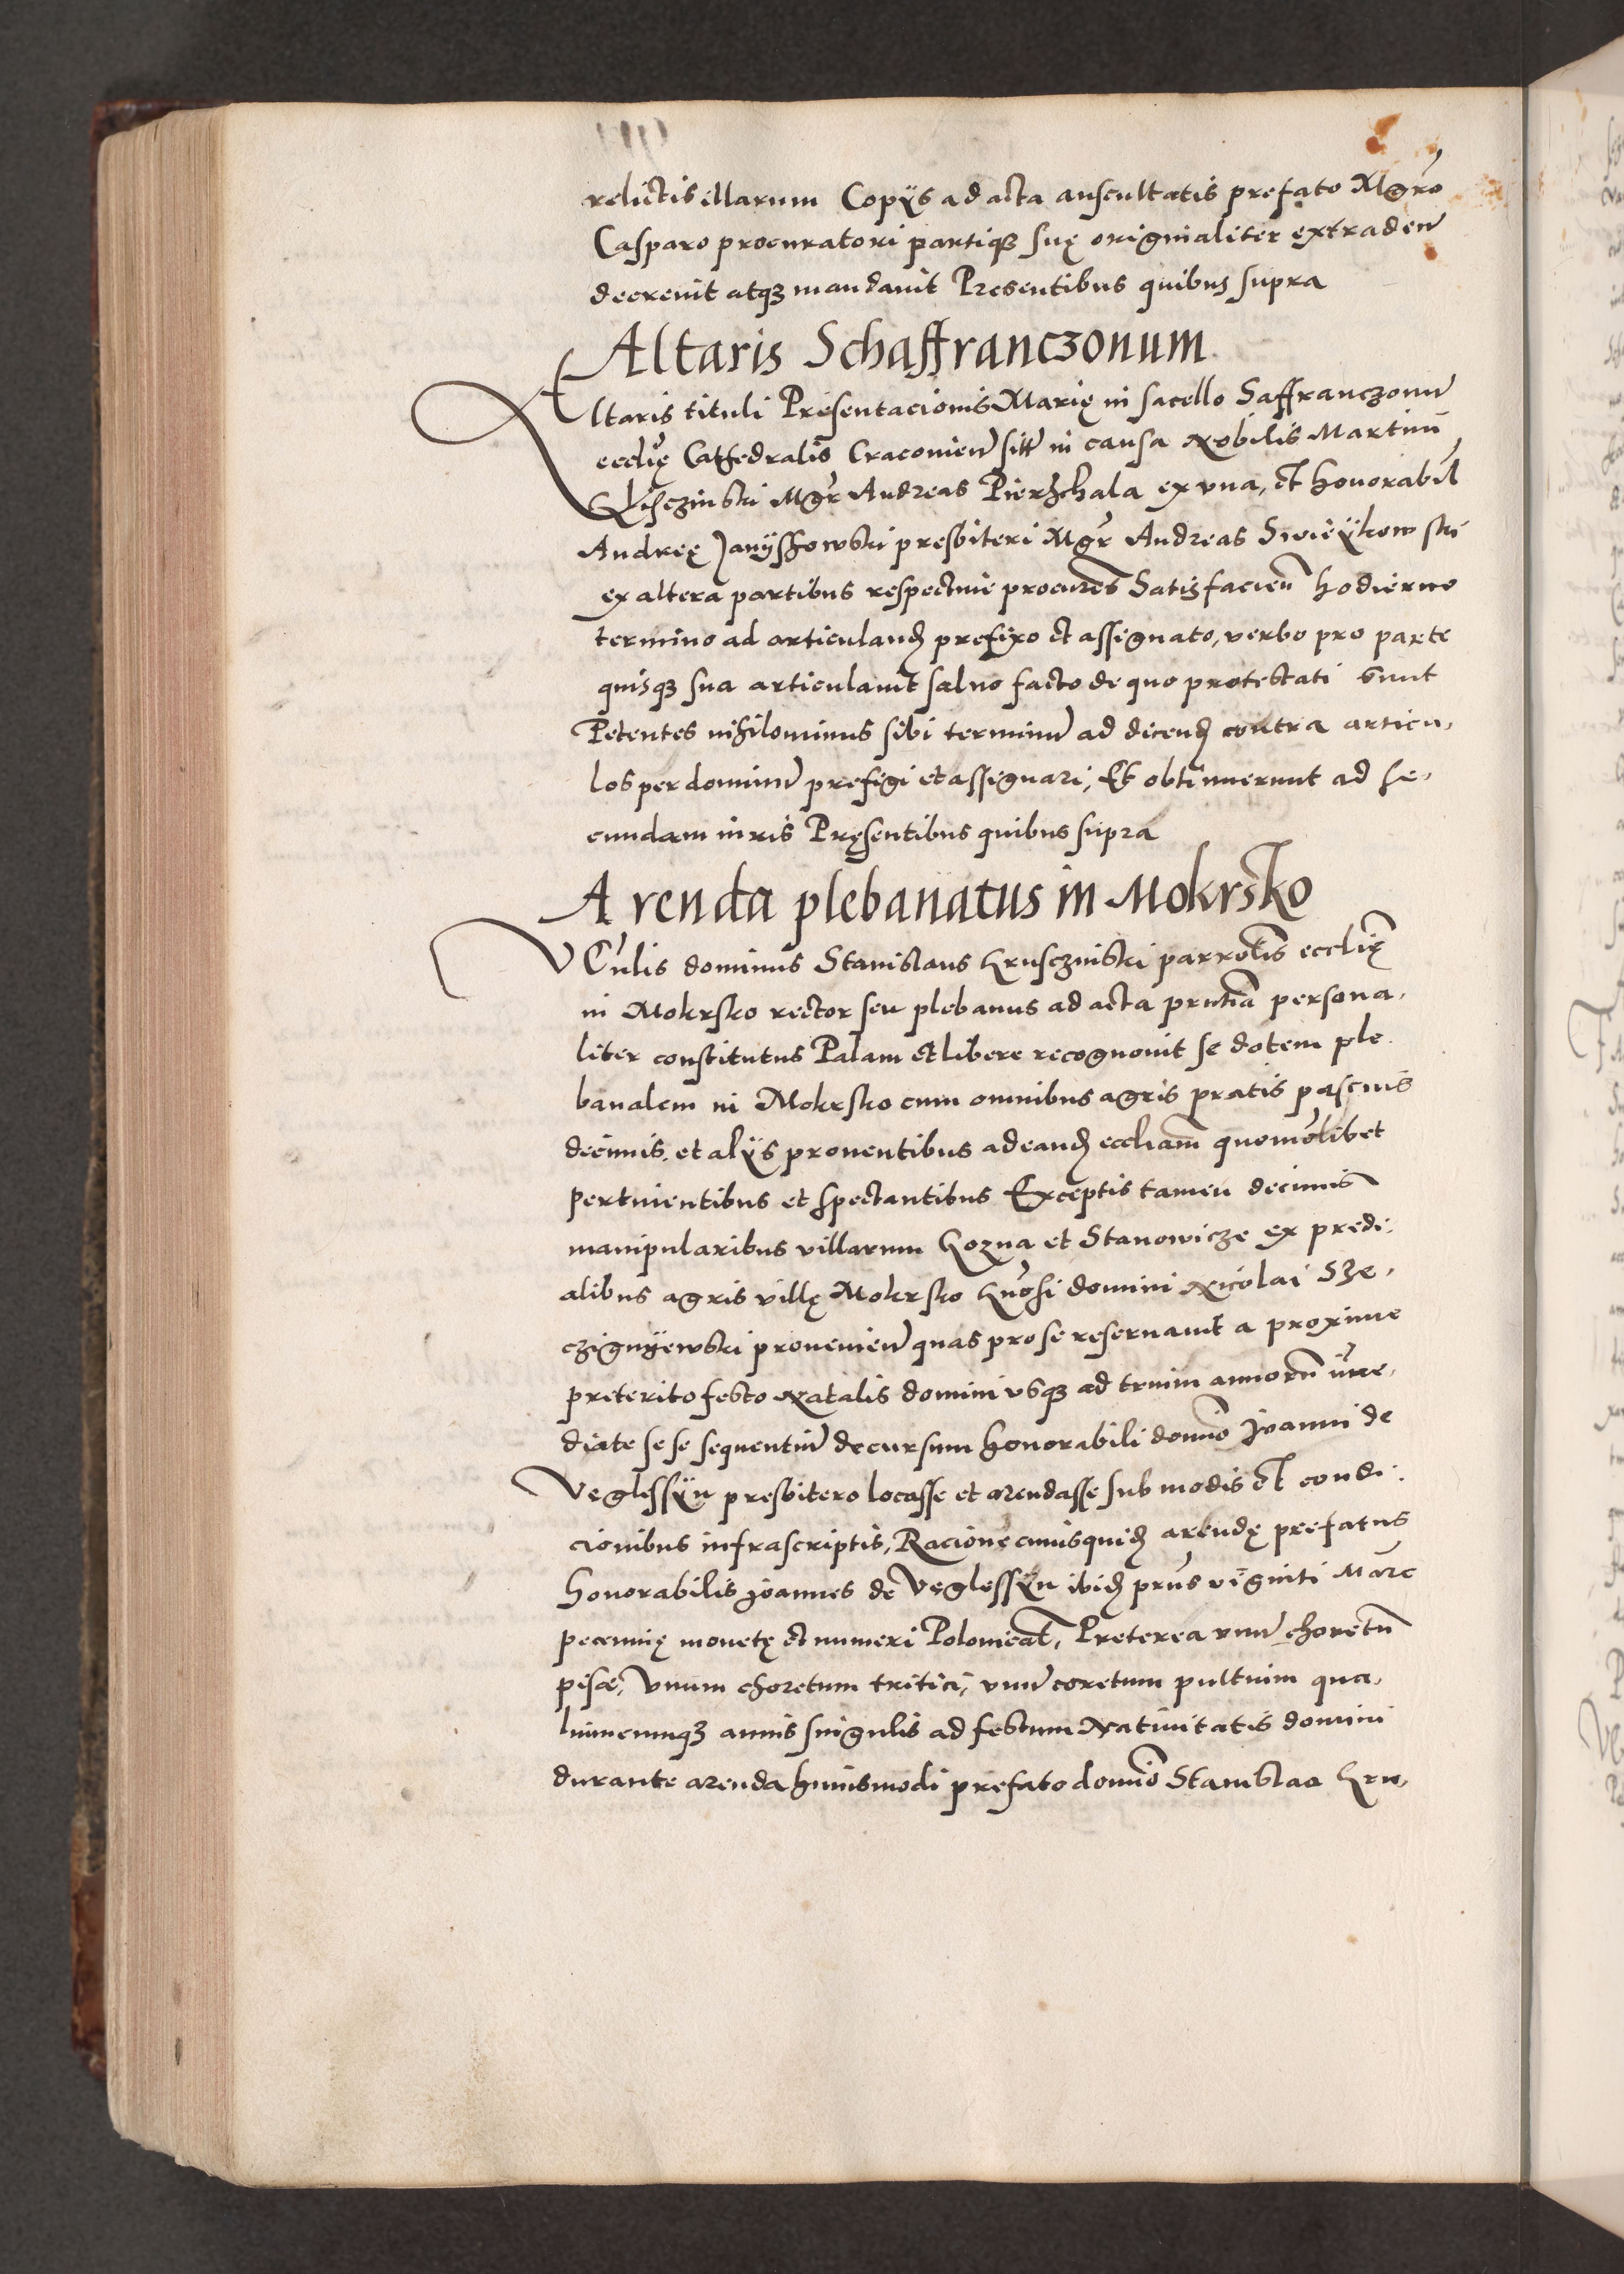 relictis illarum Copijs ad acta auscultatis prefato Mgro
Casparo procuratori partiqȝ suę originaliter extraden
decrevit atqȝ mandavit Presentibus quibus supra
Altaris Schaffranczonum
Altaris tituli Presentacionis Marię in sacello Saffranczonu
ecclię Cathedralis Cracovien sitt in causa Nobilis Martini
Mgr Andreas Pierzchala ex una, et honorabil
Andreę Janÿschowski presbiteri Mgr Andreas Swieÿkowski
ex altera partibus respective procures Satisfacien hodierno
termino ad articuland prefixo et assignato, verbo pro parte
quisqȝ sua articulavit salvo facto de quo protestati sunt
Petentes nihilominus sibi terminu ad dicend contra articu,
los per dominu prefigi et assignari, Et obtinuerunt ad se,
cundam iuris Pręsentibus quibus supra
Arenda plebanatus in Mokrsko
Venlis dominus Stanislaus Krusczinski parrolis ecclię
in Mokrsko rector seu plebanus ad acta pritia persona,
liter constitutus Palam et libere recognovit se dotem ple
banalem in Mokrsko cum omnibus agris pratis pascuis
decimis, et alijs proventibus ad eand eccliam quomolibet
pertinentibus et spectantibus Exceptis tamen decimis
manipularibus villarum Kozna et Stanowicze ex predi,
alibus agris villę Mokrsko Gnosi domini Nicolai Sze,
czignÿewski provenien quas pro se reservavit a proxime
preterito festo Natalis domini usqȝ ad trium annoru imme,
diate se se sequentiu decursum honorabili domino Joanni de
Veglessÿn presbitero locasse et arendasse sub modis et condi,
cionibus infrascriptis, Racione cuiusquid arendę prefatus
honorabilis Joannes de Veglessÿn ibid prns viginti Marc
pecunię monetę et numeri Polonicat, Preterea unu choretu
pisae, Unum choretum tritici, unu coretum pultium qua,
liumcumqȝ annis singulis ad festum Nativitatis domini
durante arenda huiusmodi prefato domino Stanislao Kru,